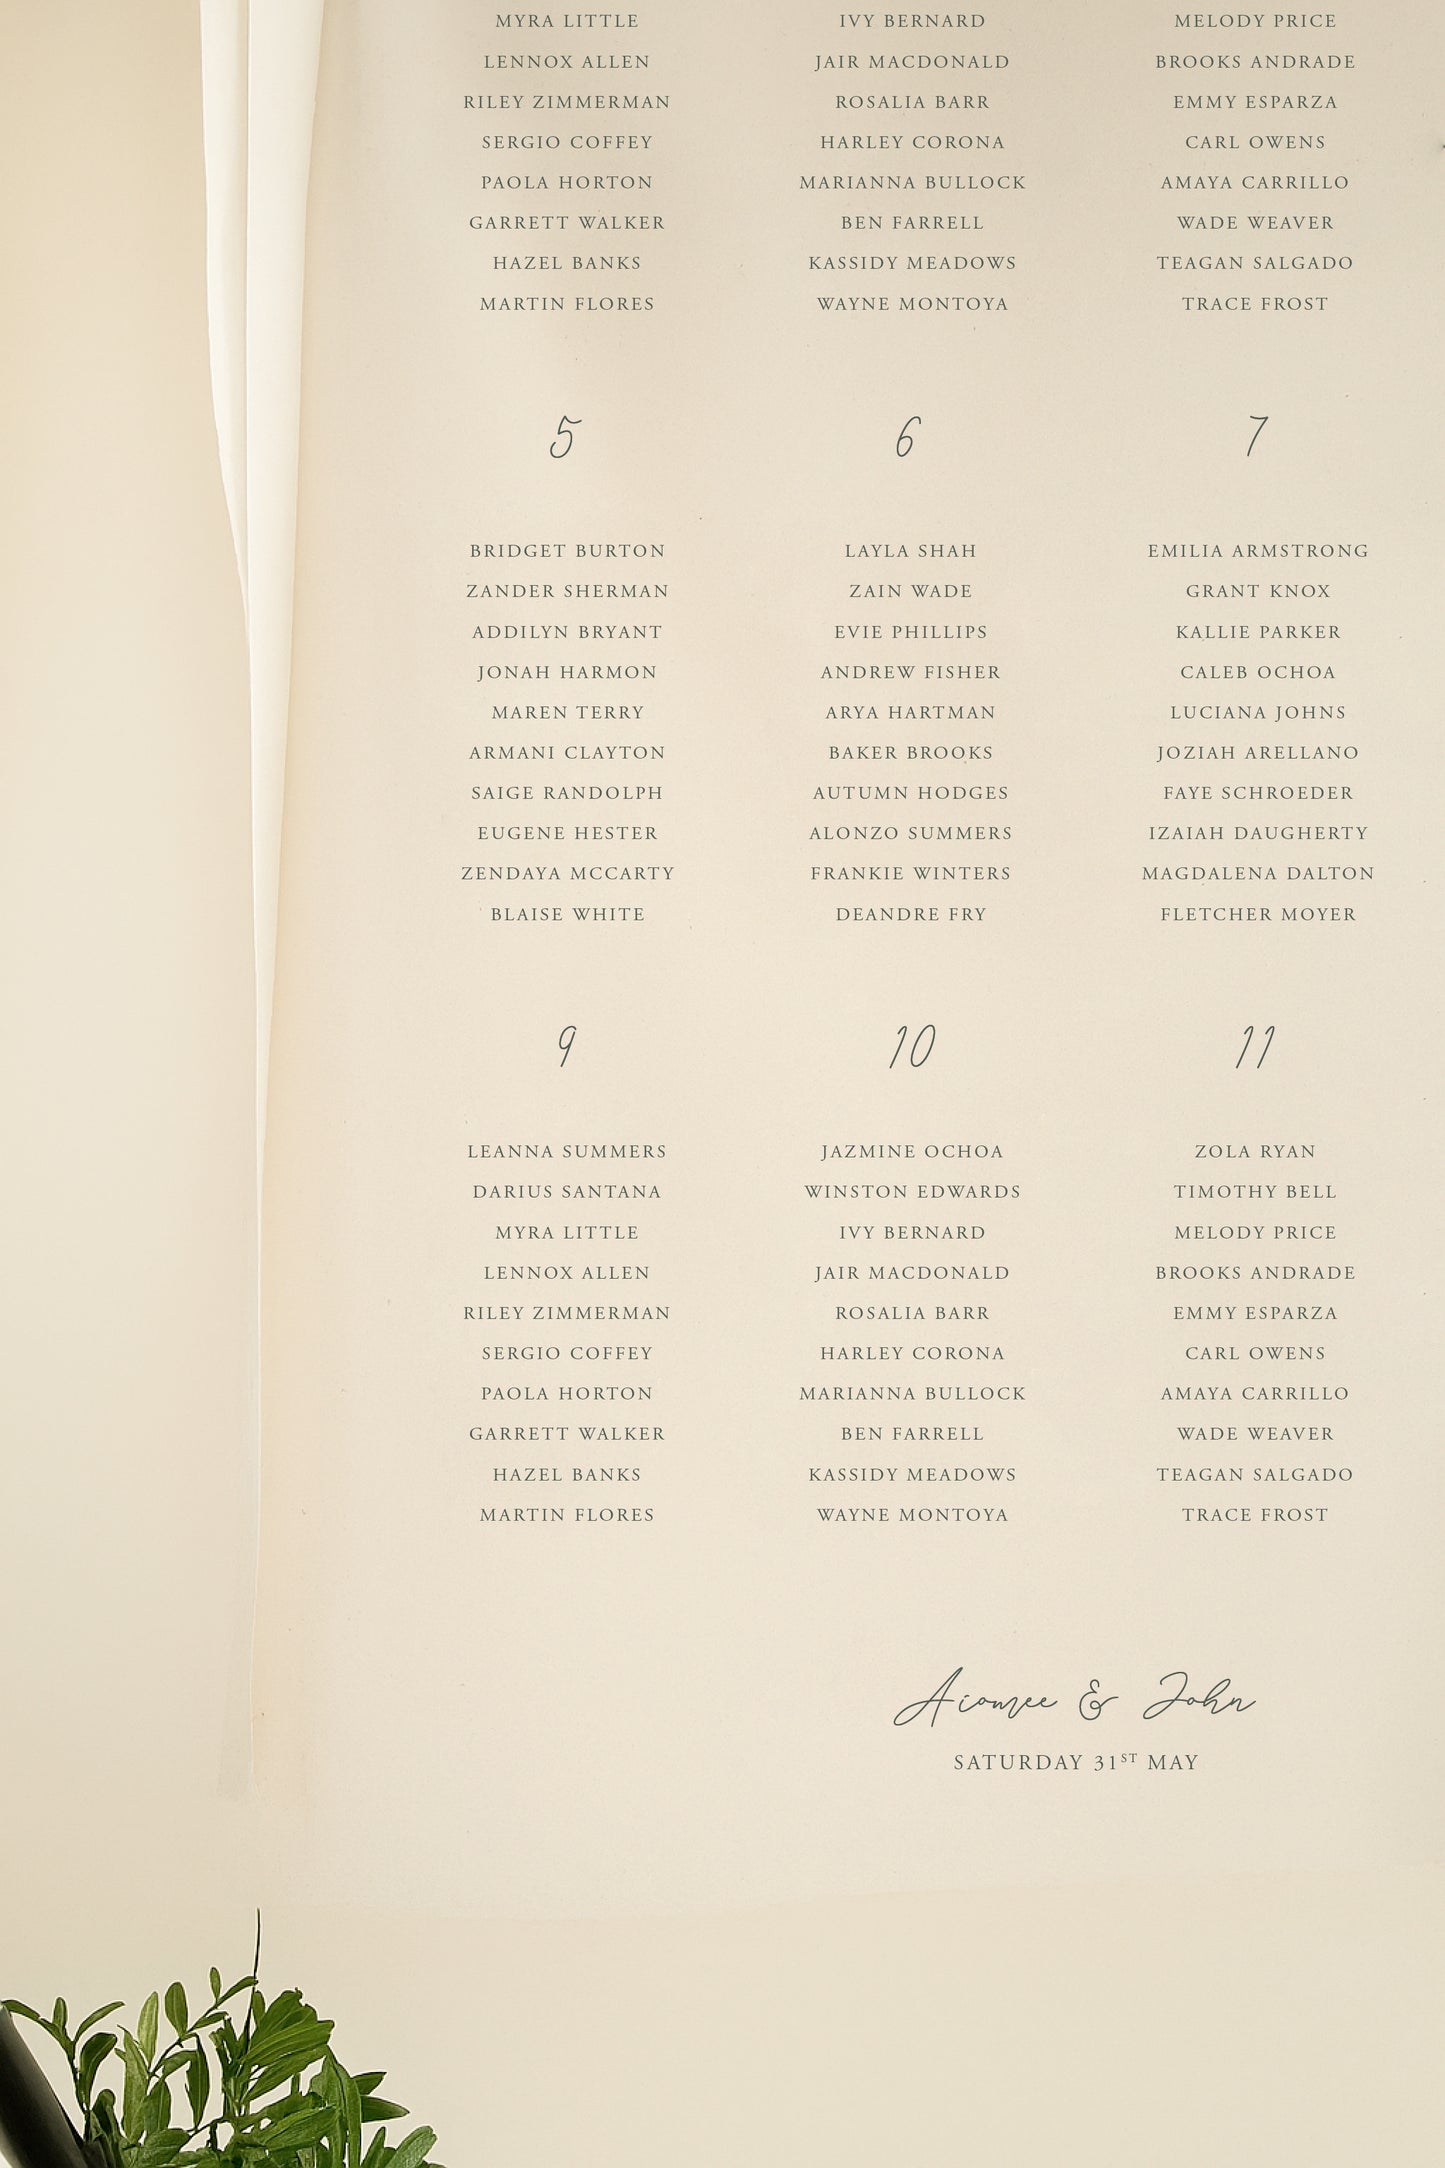 MYRA LITTLE
LENNOX ALLEN
RILEY ZIMMERMAN
SERGIO COFFEY
PAOLA HORTON
GARRETT WALKER
HAZEL BANKS
MARTIN FLORES
IVY BERNARD
JAIR MACDONALD
ROSALIA BARR
HARLEY CORONA
MARIANNA BULLOCK
BEN FARRELL
KASSIDY MEADOWS
WAYNE MONTOYA
MELODY PRICE
BROOKS ANDRADE
EMMY ESPARZA
CARL OWENS
AMAYA CARRILLO
WADE WEAVER
TEAGAN SALGADO
TRACE FROST
5
BRIDGET BURTON
ZANDER SHERMAN
ADDILYN BRYANT
JONAH HARMON
MAREN TERRY
ARMANI CLAYTON
SAIGE RANDOLPH
EUGENE HESTER
ZENDAYA MCCARTY
BLAISE WHITE
6
LAYLA SHAH
ZAIN WADE
EVIE PHILLIPS
ANDREW FISHER
ARYA HARTMAN
BAKER BROOKS
AUTUMN HODGES
ALONZO SUMMERS
FRANKIE WINTERS
DEANDRE FRY
7
EMILIA ARMSTRONG
GRANT KNOX
KALLIE PARKER
CALEB OCHOA
LUCIANA JOHNS
JOZIAH ARELLANO
FAYE SCHROEDER
IZAIAH DAUGHERTY
MAGDALENA DALTON
FLETCHER MOYER
9
LEANNA SUMMERS
DARIUS SANTANA
MYRA LITTLE
LENNOX ALLEN
RILEY ZIMMERMAN
SERGIO COFFEY
PAOLA HORTON
GARRETT WALKER
HAZEL BANKS
MARTIN FLORES
10
JAZMINE OCHOA
WINSTON EDWARDS
IVY BERNARD
JAIR MACDONALD
ROSALIA BARR
HARLEY CORONA
MARIANNA BULLOCK
BEN FARRELL
KASSIDY MEADOWS
WAYNE MONTOYA
11
ZOLA RYAN
TIMOTHY BELL
MELODY PRICE
BROOKS ANDRADE
EMMY ESPARZA
CARL OWENS
AMAYA CARRILLO
WADE WEAVER
TEAGAN SALGADO
TRACE FROST
& John
SATURDAY 31ST MAY